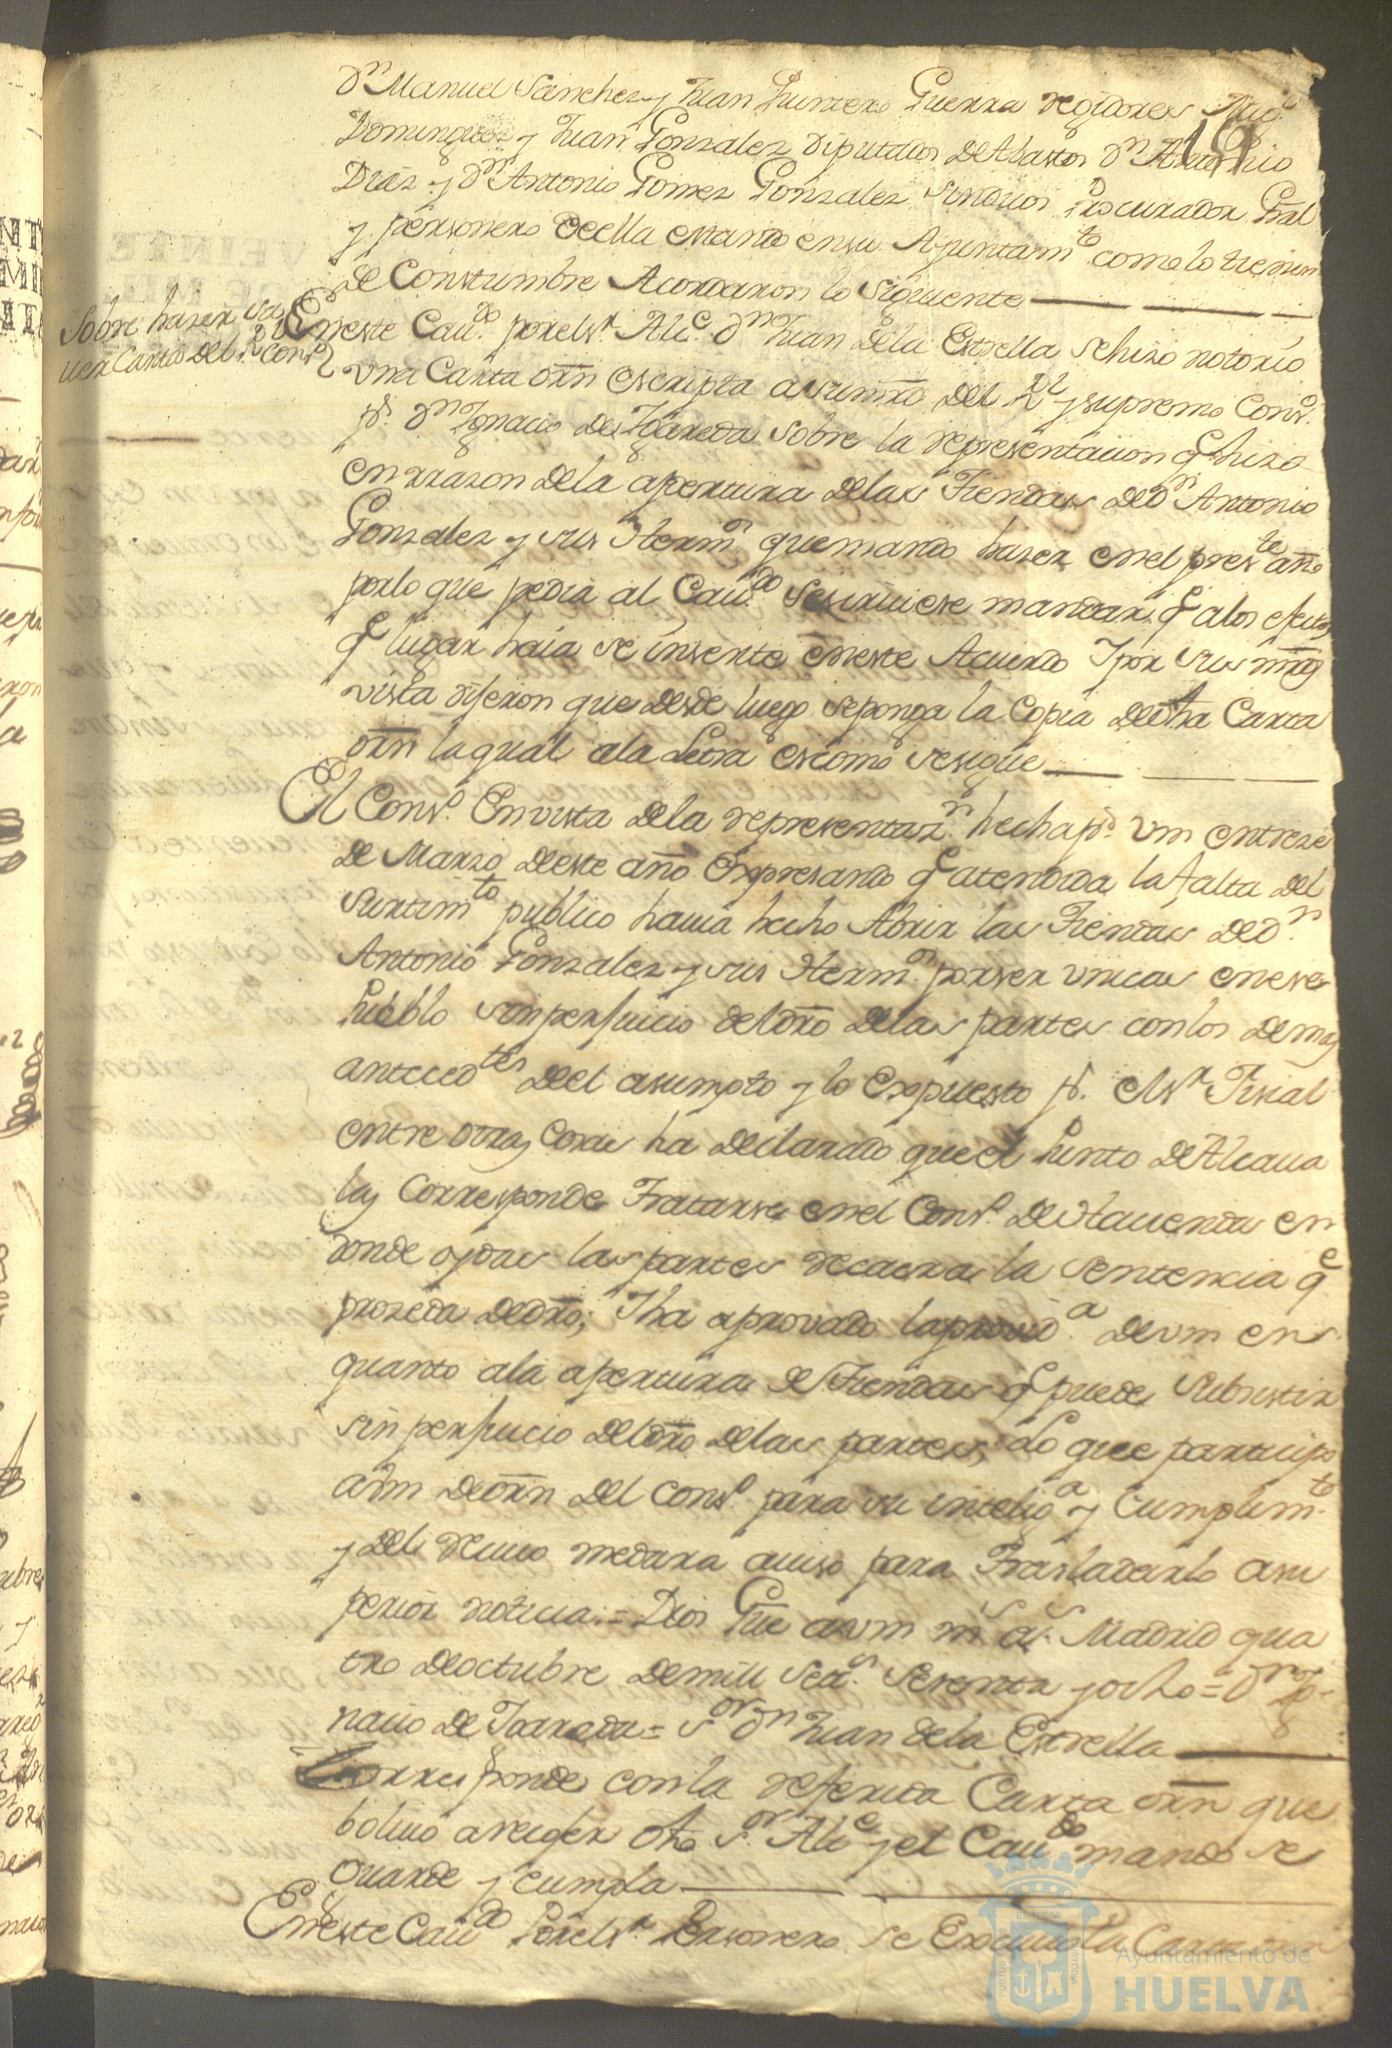 Dn Manuel Sanchez y Juan Quintero Guerra regidores Migl
19
Dominguez y Juan Gonzalez Diputados de Abastos Dn Antonio
Diaz y Dn Antonio Gomez Gonzalez Sindicos Procurador Gral
y personero de ella estando en su Ayuntamto como lo tienen
de Constumbre Acordaron lo Siguiente
Sobre hazer sa
ver Carta del Rl Conso
En este Cavdo por el sr Alce Dn Juan de la Estrella se hizo notorio
vna Carta orn escripta a su mrd del Rl y supremo Conso
pr Dn Ignacio de Igareda sobre la representacion q hizo
en rrazon de la apertura de las Tiendas de Dn Antonio
Gonzalez y sus Hermos que mando hazer en el preste año
por lo que pedia al Cavdo se sirviese mandar q a los efectos
q lugar haia se insente en este Acuerdo Y por sus mrds
vista dijeron que desde luego se ponga la Copia de dha Carta
orn la qual a la Letra es como se sigue
El Conso En vista de la representazn hecha pr Vm en treze
de Marzo de este año Expresando q atendida la falta del
surtimto publico havia hecho Abrir las Tiendas de Dn
Antonio Gonzalez y sus Hermos por ser vnicas en ese
Pueblo sin perjuicio del dro de las partes con los demas
antecedtes de el asumpto y lo Expuesto pr el sr Fiscal
entre otras Cosas ha declarado que el Punto de Alcava
las Corresponde Tratarse en el Conso de Hacienda en
donde oydas las partes recaera la sentencia q
prozeda de dro; Y ha aprovado la provida de vm en
quanto a la apertura de Tiendas q puede Subsistir
sin perjuicio del dro de las partes; Lo que participo
a vm de orn del Conso para su inteliga y Cumplimto
y del recivo me dara aviso para Trasladarlo a su
perior noticia = Dios Gue a vm ms as Madrid qua
tro de octubre de mill setezs sesenta y ocho = Dn Ig
nacio de Igareda = Sor Dn Juan de la Estrella
Corresponde con la referida Carta orn que
bolvio a recojer dho Sor Alce y el Cavdo mando se
Guarde y cumpla
En este Cavdo Por el sr Personero se Exsivio la Carta
Ayuntamiento de
HUELVA